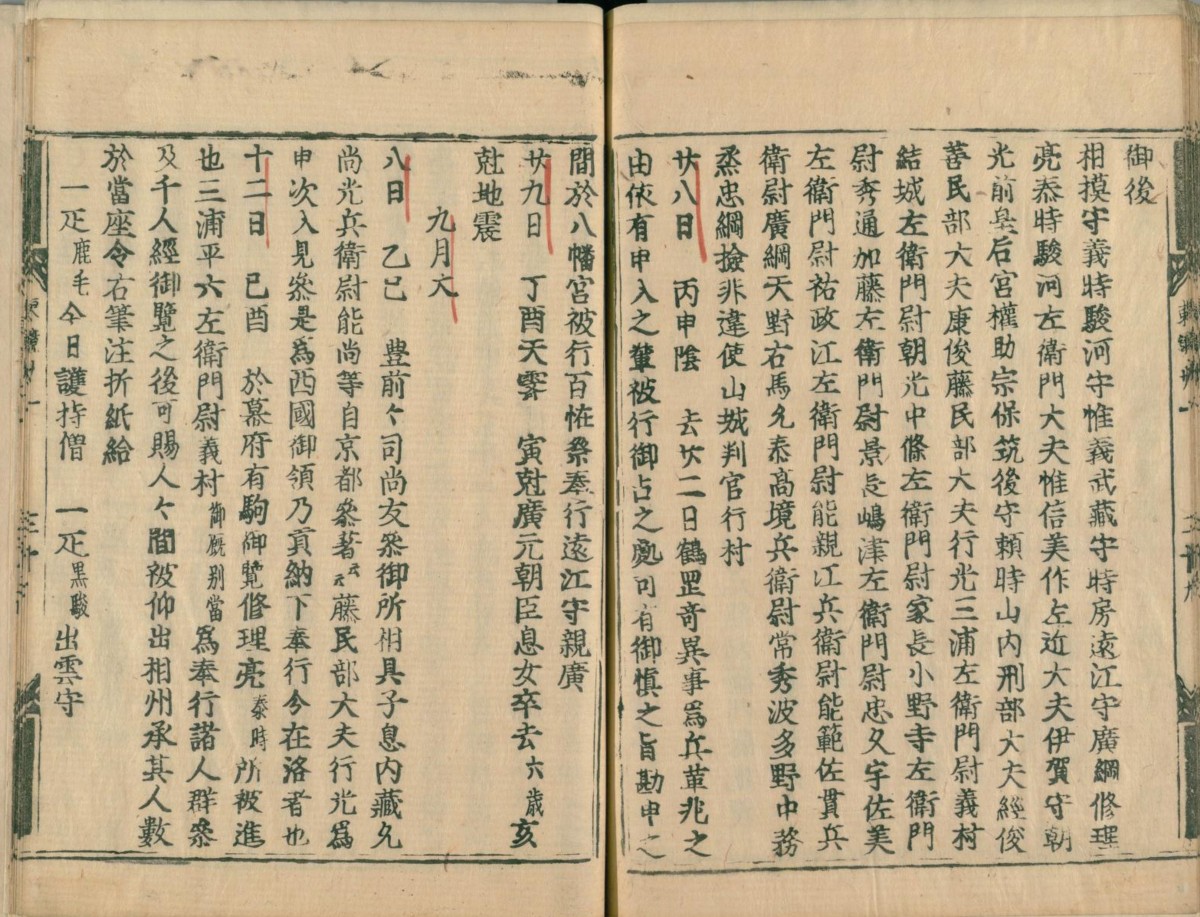 御後
相摸守義時駿河守惟義武藏守時房遠江守廣綱修理
亮泰時駿河左衛門大夫惟信美作左近大夫伊賀守朝
光前皇后宮權助宗保筑後守頼時山内刑部大夫經俊
善民部大夫康俊藤民部大夫行光三浦左衛門尉義村
結城左衛門尉朝光中條左衛門尉家長小野寺左衛門
尉秀通加藤左衛門尉景長嶋津左衛門尉忠久宇佐美
左衛門尉祐政江左衛門尉能親江兵衛尉能範佐貫兵
衛尉廣綱天野右馬允泰髙境兵衛尉常秀波多野中務
烝忠綱撿非違使山城判官行村
廿八日 丙申陰 去廿二日鶴罡竒異事爲兵革兆之
由依有申入之輩被行御占之處可有御愼之旨勘申之
間於八幡宮被行百恠祭奉行遠江守親廣
廿九日 丁酉天霽 寅尅廣元朝臣息女卒去六歳亥
尅地震
九月大
八日 乙巳 豊前々司尚友参御所相具子息内藏允
尚光兵衛尉能尚等自京都參著云云藤民部大夫行光爲
申次入見參是為西國御領乃貢納下奉行今在洛者也
十二日 己酉 於幕府有駒御覽修理亮泰時所被進
也三浦平六左衛門尉義村御厩別當爲奉行諸人群參
及千人經御覽之後可賜人々間被仰出相州承其人數
於當座令右筆注折紙給
一疋鹿毛今日護持僧 一疋黒駮出雲守